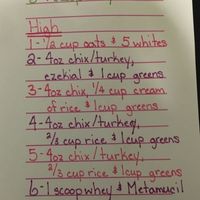 High
1-1/2 cup oats & 5 whites
2-4oz chix/turkey,
ezekial & 1 cup greens
3-4oz chix, 1/4 cup cream
of rice & 1 cup greens
4-4oz chix/turkey,
2/3 cup rice & 1 cup greens
5-4oz chix/turkey,
2/3 cup rice & 1 cup greens
6-1 scoop whey & Metamucil